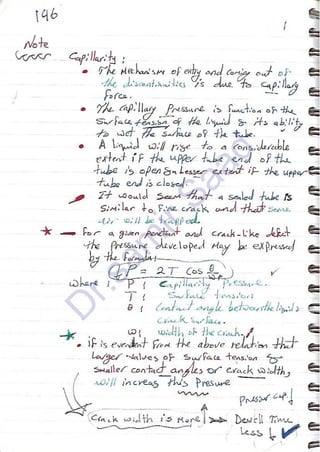 146
1
Note
Capillarity:
• The Mechanism of entry and coming out of
the discontinuities is due to capillary
force.
• The capillary Pressure is function of the
Surface tension of the liquid & its ability
to wet the surface of the tube.
• A liquid will rise to a considerable
extent if the upper tube end of the
tube is open & Lesser extent if the upper
tube end is closed
• It would Seem that a sealed tube is
Similar to Fine crack and that some
air will be trapped.
* — For a given penetrant and crack-like defect
the Pressure developed May be expressed
by the Formula:
P = 2T cos θ/w
where: P: Capillarity Pressure.
T: Surface tension
θ: Contact angle between the liquid &
crack surface.
w: width of the crack.
* • if is evendent From the above relation that
Larger values of Surface tension &
Smaller contact angles or crack width,
will increas this Presure
Pressur cap ↓
Crack width is More Dewell Time
Less ↓